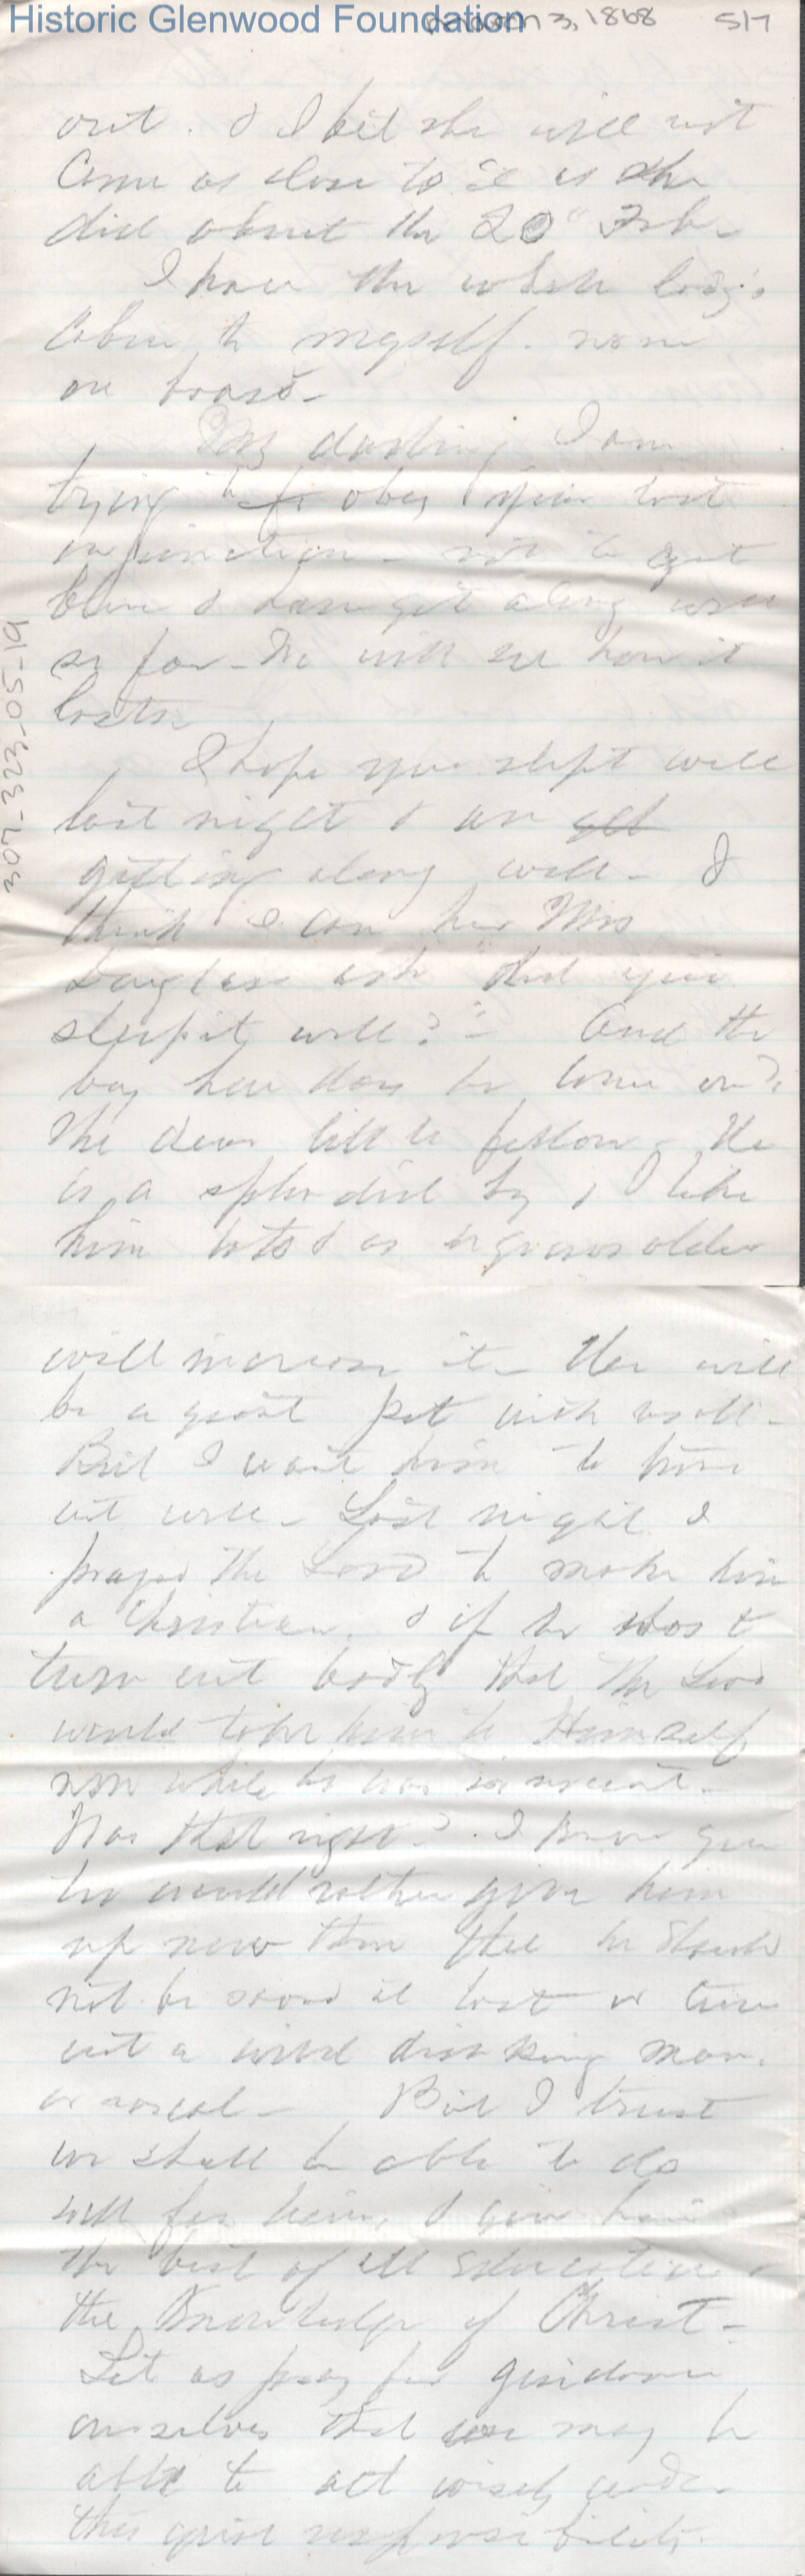 Historic Glenwood Foundation
March 3, 1868 5/7
out. & I bet she will not
Come as close to it as she
did about the 20" Feb.
I have the whole lady's
Cabin to myself. none
on board-
My darling I am
trying to obey your last
injunction - not to get
blue & have got along well
so far - We will see how it
lasts
I hope you slept well
last night & are
getting along well - I
think I can hear Mrs
Douglass ask "did you
sleep it well?" - And the
boy how does he come on?
The dear little fellow - He
is a splendid boy, I like
him lots & as he grows older
will increase it - He will
be a great pet with us all -
But I want him to turn
out well - Last night I
prayed the Lord to make him
a Christian. & if he was to
turn out badly that the Lord
would take him to Himself
now while he was innocent -
Was that right? I know you
too would rather give him
up now than that he should
not be saved at last or turn
out a wild drinking man.
or rascal - But I trust
we shall be able to do
well for him, & give him
the best of all education -
the Knowledge of Christ -
Let us pray for guidance
ourselves that we may be
able to act wisely under
this great responsibility.
307_323_05-19